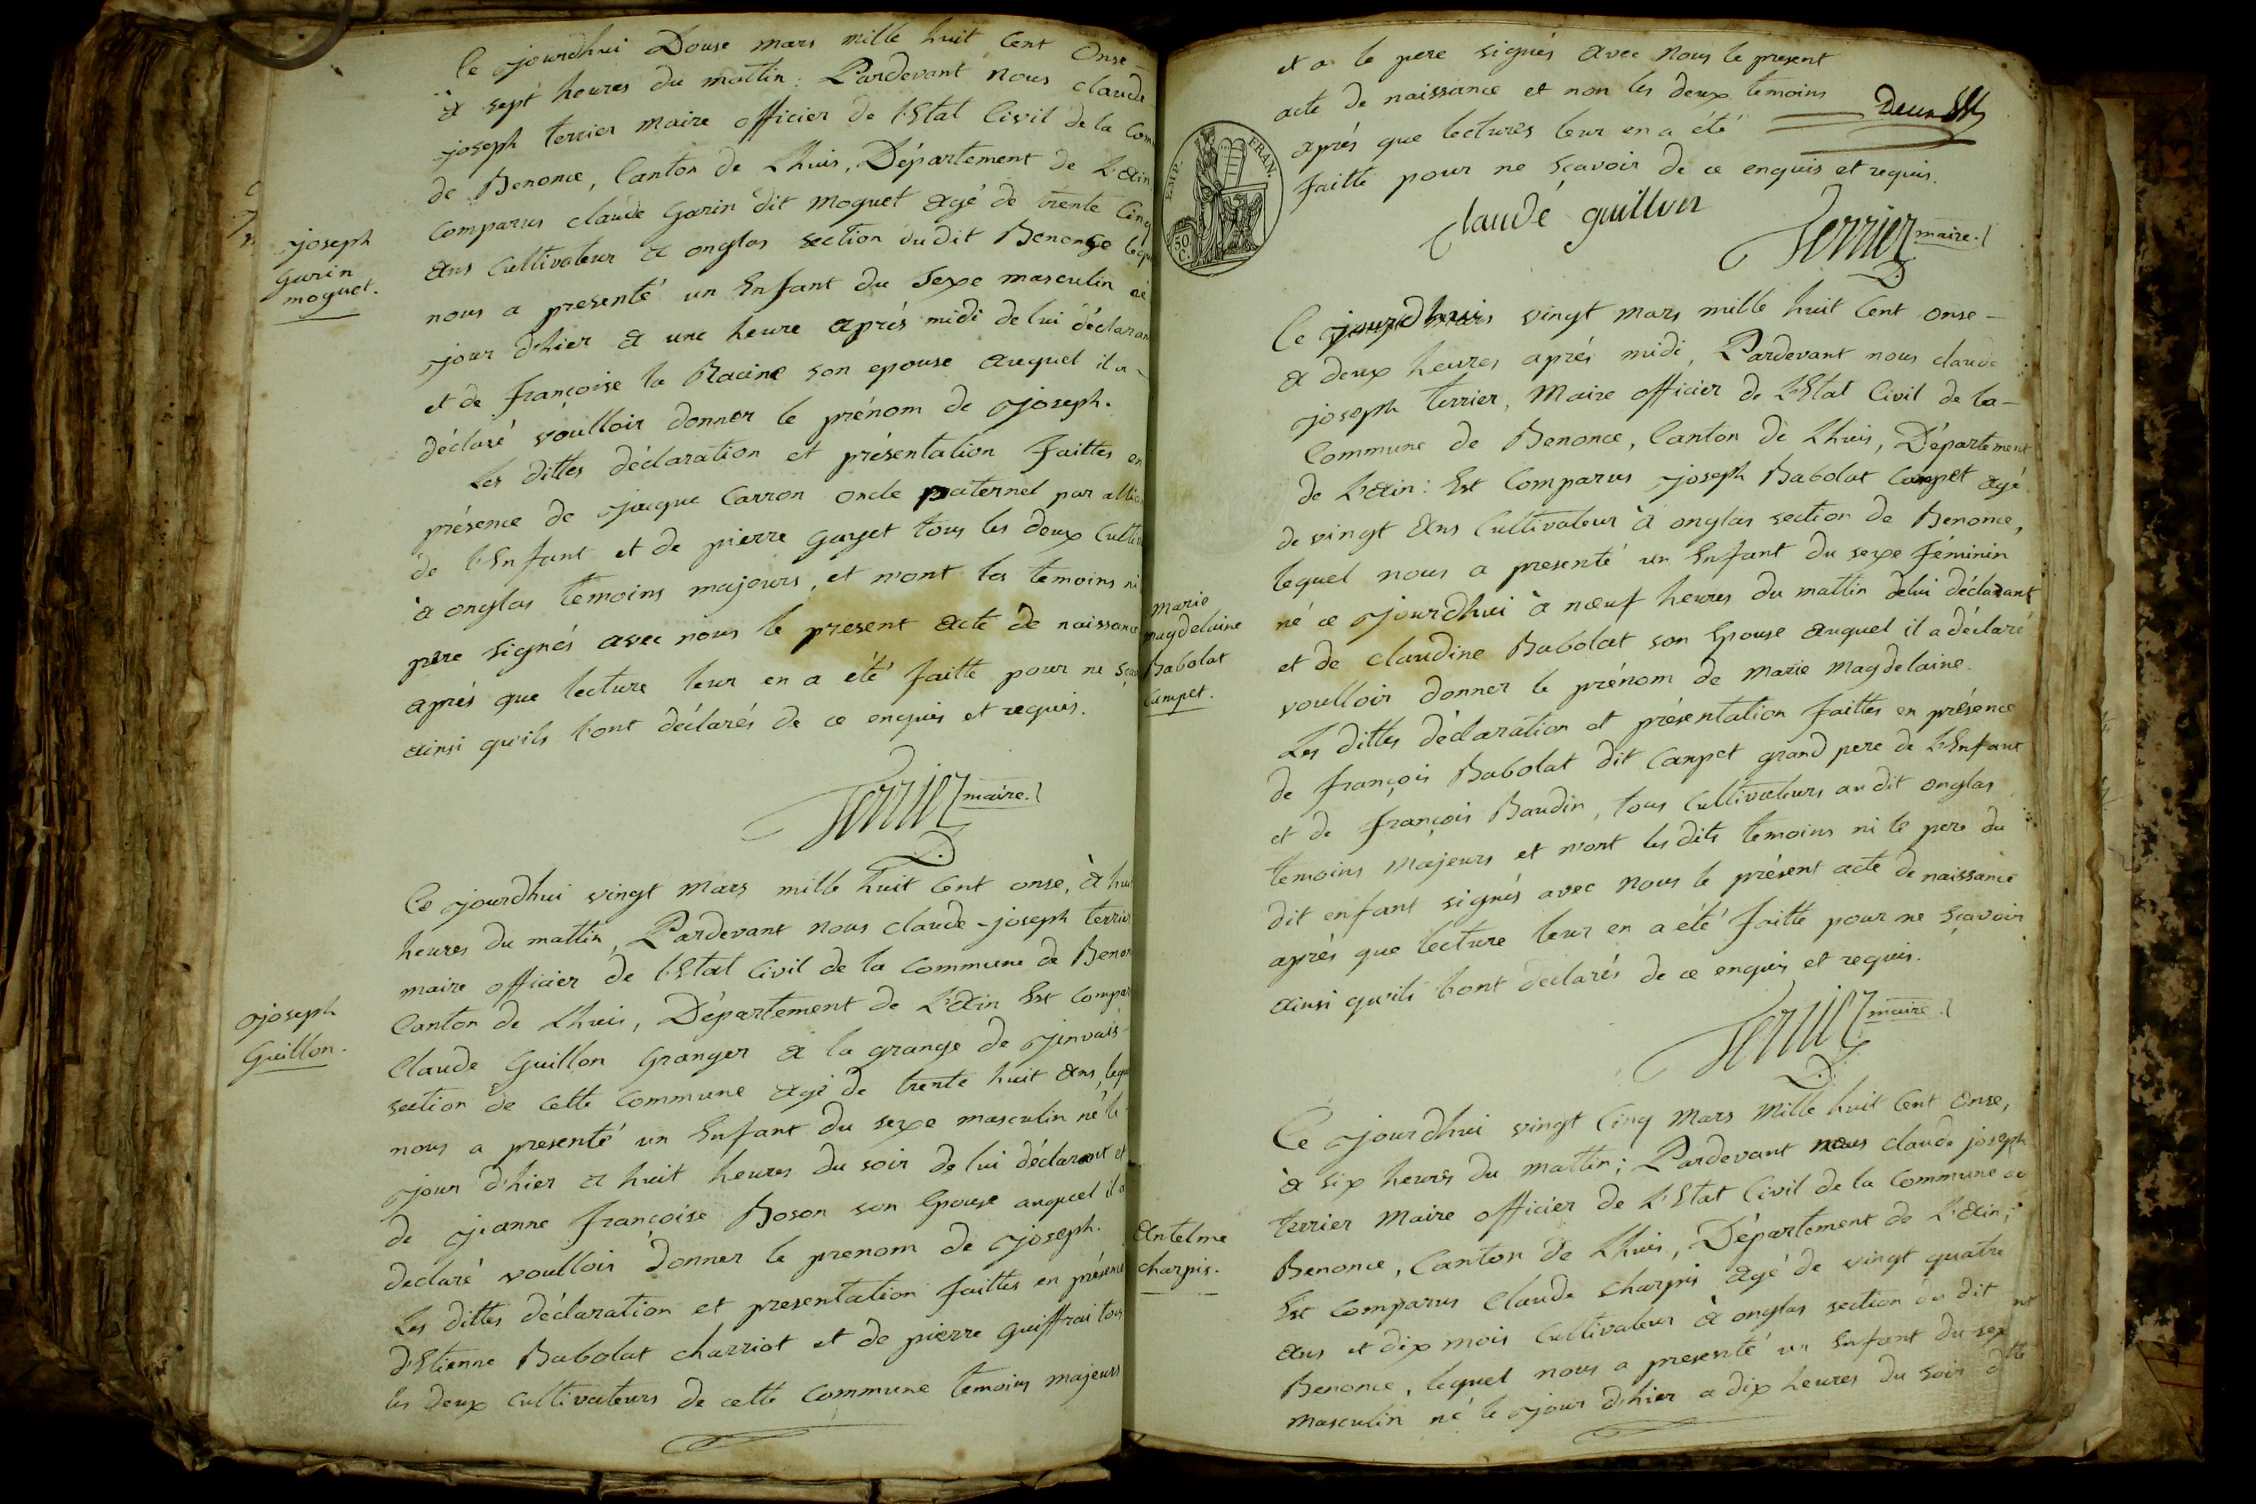 Ce jourdhui Douse mars mille huit Cent Onse
à sept heures du mattin : Pardevant nous claude
joseph terrier maire officier de l'Etat Civil de la Com
de Benonce, Canton de Lhuis, Département de L'ain
Joseph
Garin
moguet.
Comparus claude Garin dit moguet agé de trente Cinq
ans Cultivateur à onglas section du dit Benonce lequ
nous a presenté un Enfant du Sexe masculin né
jour d'hier à une heure aprés midi de lui déclarant
et de françoise la Racine son epouse auquel il a
déclaré voulloir donner le prénom de joseph.
Les dittes déclaration et présentation faittes en
présence de jaque Carron oncle paternel par allia
de l'Enfant et de pierre gayet tous les deux Cultiv
à onglas temoins majeurs, et n'ont les temoins ni
pere signés avec nous le present acte de naissance
aprés que lecture leur en a été faitte pour ne sça
ainsi qu'ils l'ont déclarés de ce enquis et requis.
Terrier maire.
Ce jourdhui vingt mars mille huit Cent onse, à huit
heures du mattin, Pardevant nous claude-joseph terrier
maire officier de l'Etat Civil de la Commune de Benon
Canton de Lhuis, Département de L'ain Est Compar
joseph
Guillon.
Claude Guillon Granger à la grange de jinvais
section de cette Commune agé de trente huit ans, lequ
nous a presenté un Enfant du sexe masculin né le
jour d'hier à huit heures du soir de lui déclarant et
de jeanne françoise Boson son Epouse auquel il a
déclaré voulloir donner le prenom de joseph.
Les dittes déclaration et presentation faittes en présence
d'Etienne Babolat charriot et de pierre guiffrai tous
les deux Cultivateurs de cette Commune temoins majeurs
et a le pere signés avec nous le present
acte de naissance et non les deux temoins
aprés que lectures leur en a été
faitte pour ne sçavoir de ce enquis et requis.
EMP. FRAN.
50 C.
Claude guillon
Terrier maire.
Ce jourdhui vingt mars mille huit Cent onse
à deux heures aprés midi, Pardevant nous claude
joseph terrier, Maire officier de L'Etat Civil de la
Commune de Benonce, Canton de Lhuis, Département
de L'ain : Est Comparus joseph Babolat Campet agé
de vingt ans Cultivateur à onglas section de Benonce,
lequel nous a presenté un Enfant du sexe féminin
marie
magdelaine
Babolat
Campet.
né ce jourdhui à neuf heures du mattin de lui déclarant
et de claudine Babolat son Epouse auquel il a déclaré
voulloir donner le prénom de marie magdelaine.
Les dittes déclaration et présentation faittes en présence
de françois Babolat dit Campet grand pere de l'Enfant
et de françois Baudin, tous Cultivateurs au dit onglas
temoins majeurs et n'ont les dits temoins ni le pere du
dit enfant signés avec nous le présent acte de naissance
aprés que lecture leur en a été faitte pour ne sçavoir
ainsi qu'ils l'ont déclarés de ce enquis et requis.
Terrier maire.
Ce jourdhui vingt Cinq mars mille huit Cent onse,
à six heures du mattin ; Pardevant nous claude joseph
terrier maire officier de L'Etat Civil de la Commune de
Benonce, Canton de Lhuis, Département de L'ain ;
antelme
charpis.
Est Comparus Claude charpis agé de vingt quatre
ans et dix mois Cultivateur à onglas section du dit
Benonce, lequel nous a presenté un Enfant du sex
masculin né le jour d'hier a dix heures du soir